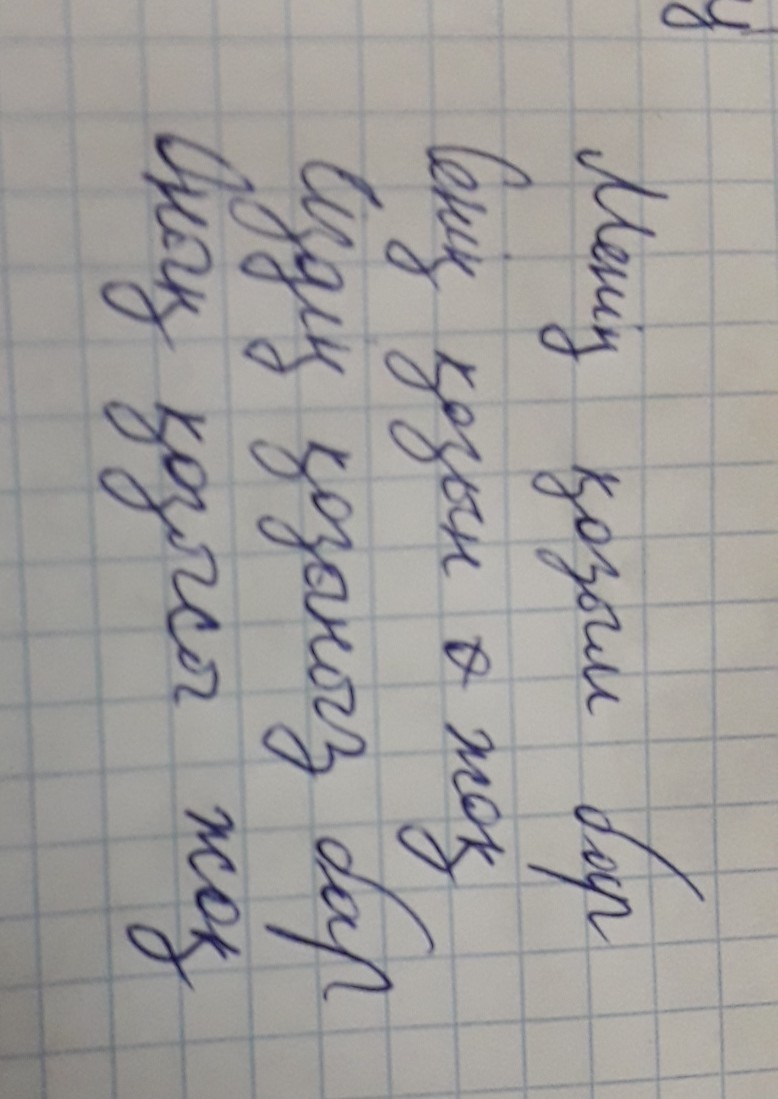 Менің қозым бар
Сенің қозың жоқ
Сіздің қозыныз бар
Оның қозысы жоқ